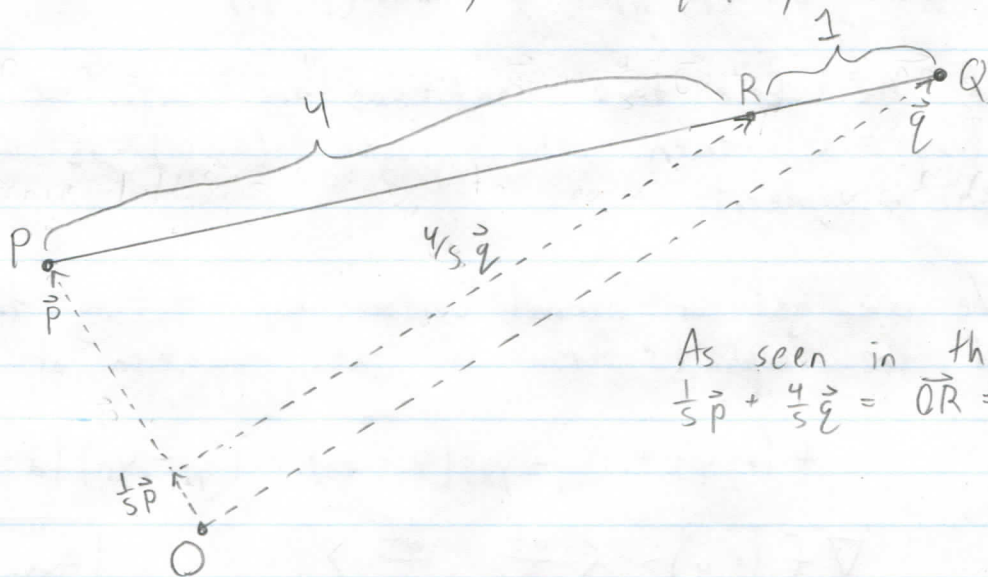 1
R
Q
q⃗
4
4/5 q⃗
P
p⃗
As seen in th
1/5 p⃗ + 4/5 q⃗ = OR⃗ =
1/5 p⃗
O